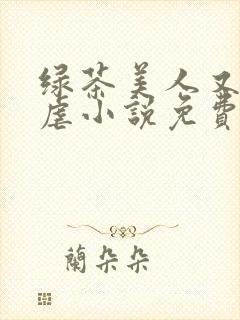 绿茶美人又
虐小說免費
蘭朵朵